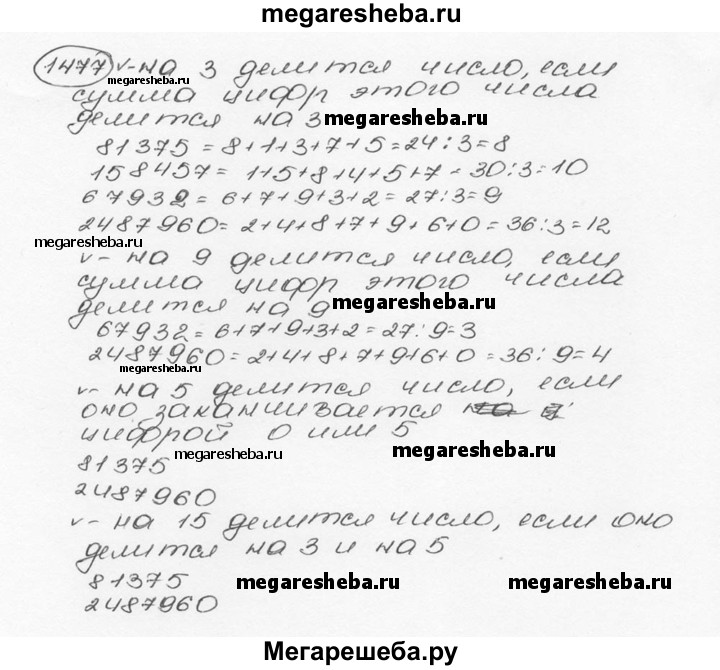 megaresheba.ru
1477 v - на 3 делится число, если
megaresheba.ru
сумма цифр этого числа
делится на 3 megaresheba.ru
81375 = 8+1+3+7+5=24:3=8
158457= 1+5+8+4+5+7=30:3=10
67932= 6+7+9+3+2=27:3=9
2487960= 2+4+8+7+9+6+0=36:3=12
megaresheba.ru
v- на 9 делится число, если
сумма цифр этого числа
делится на 9 megaresheba.ru
67932= 6+7+9+3+2= 27:9=3
2487960=2+4+8+7+9+6+0=36:9=4
megaresheba.ru
v- на 5 делится число, если
оно заканчивается
цифрой 0 или 5 megaresheba.ru
81375 megaresheba.ru
2487960
v- на 15 делится число, если оно
делится на 3 и на 5
81375 megaresheba.ru megaresheba.ru
2487960
Мегарешеба.ру